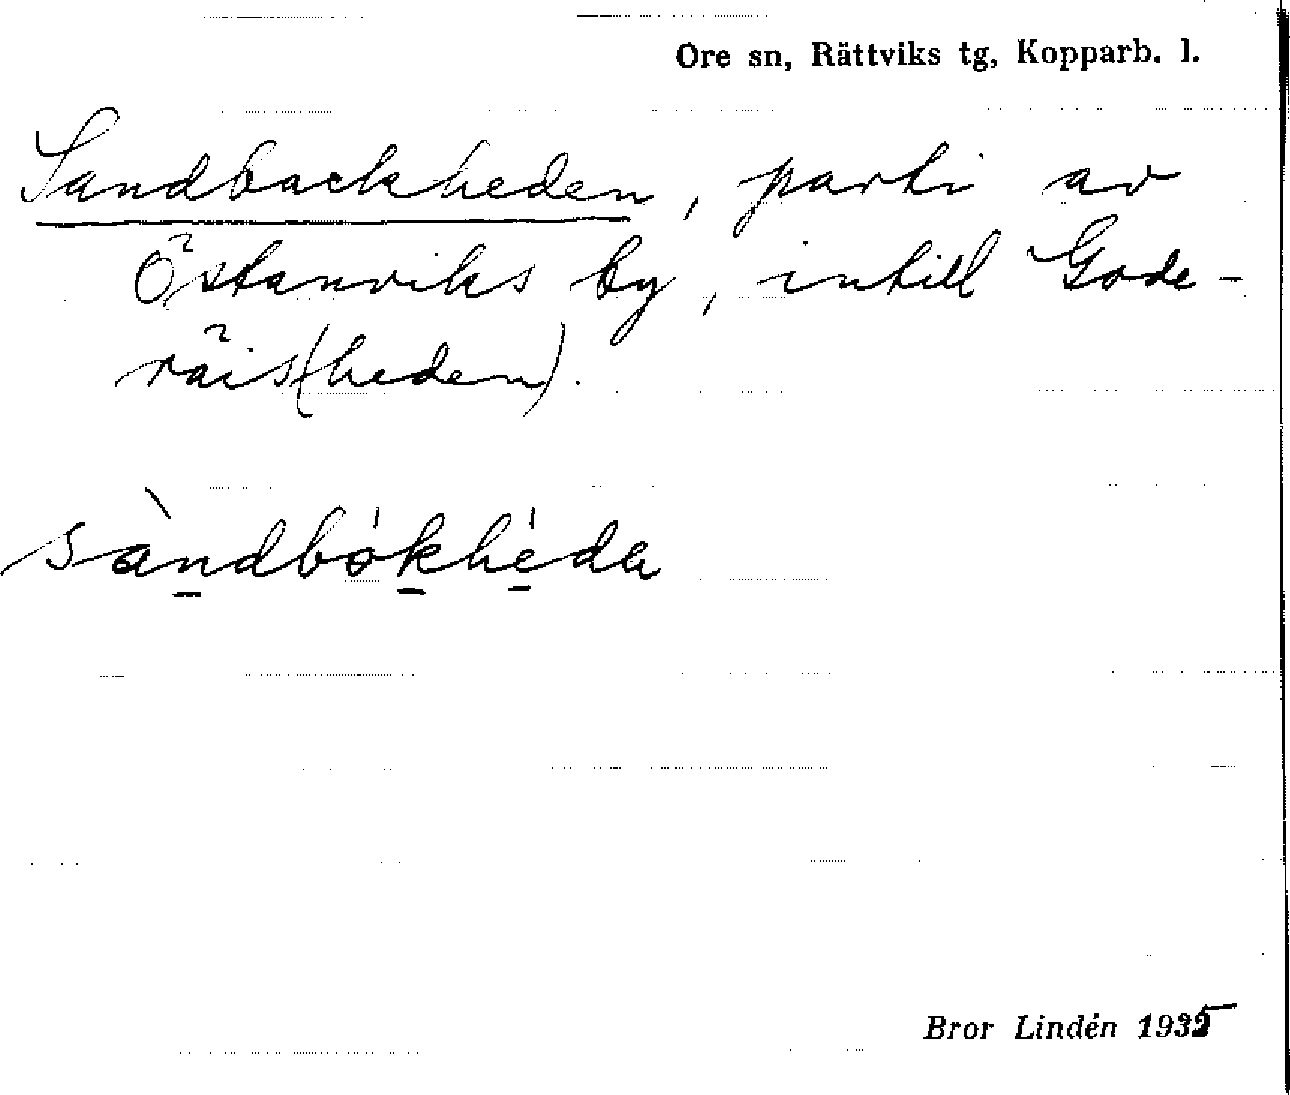 Ore sn, Rättviks tg, Kopparb. l.
Sandbackheden, parti av
Östanviks by, intill Gode-
räis(heden).
sàndbókhéda
Bror Lindén 1935